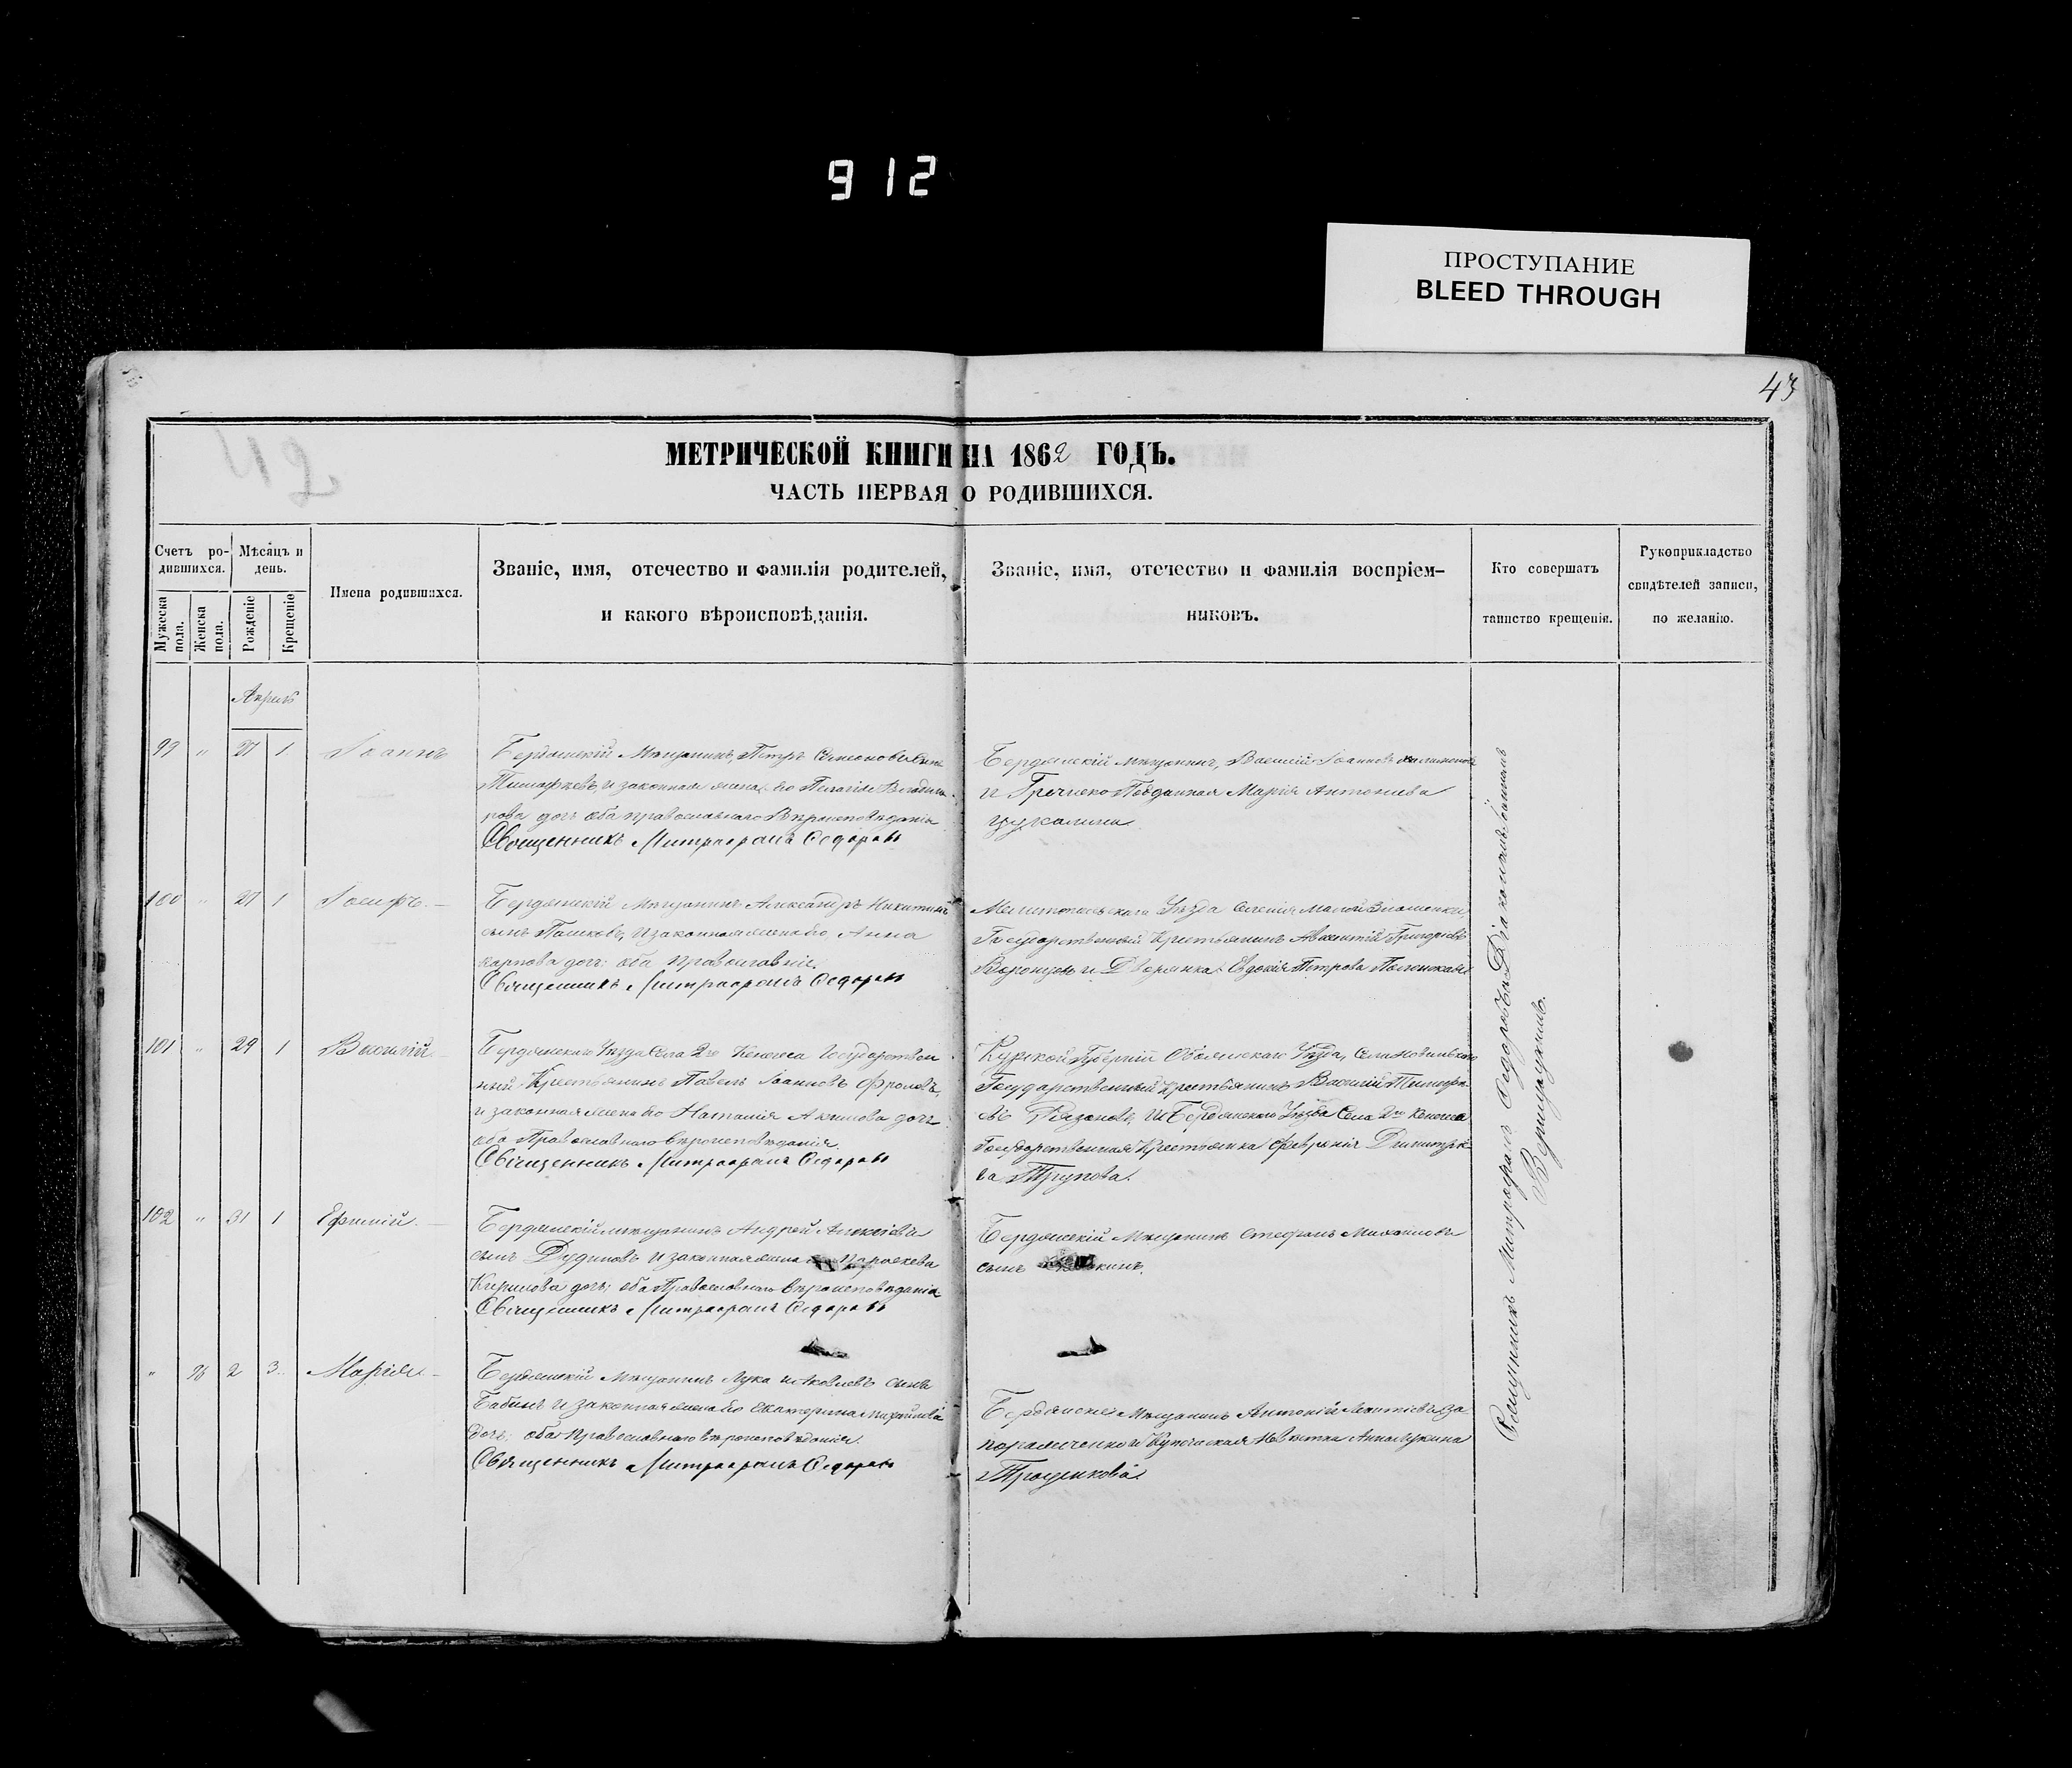 912
ПРОСТУПАНИЕ
BLEED THROUGH
43
МЕТРИЧЕСКОЙ КНИГИ НА 1862 ГОДЪ.
ЧАСТЬ ПЕРВАЯ О РОДИВШИХСЯ.
Счетъ ро-
дившихся.
Мужеска пола.
Женска пола.
Мѣсяцъ и
день.
Рожденіе
Крещеніе
Имена родившихся.
Званіе, имя, отечество и фамилія родителей,
и какого вѣроисповѣданія.
Званіе, имя, отечество и фамилія воспріем-
никовъ.
Кто совершатъ
таинство крещенія.
Рукоприкладство
свидѣтелей записи,
по желанію.
Апрель
99 " 27 1 Іоаннъ
Бердянскій Мѣщанинъ, Петръ
и законная жена его Пелагія Владими
рова дочь оба православнаго Вѣроисповѣданія
Священникъ Митрофанъ Ѳедоровъ
Бердянскій мѣщанинъ, Василій Іоанновъ
и Греческо Подданная Марія Антоніева
100 " 27 1 Іосифъ.
Бердянскій Мѣщанинъ Александръ Никитинъ
сынъ Пашковъ, и законная жена его Анна
Карпова дочь: оба Православніе.
Священникъ Митрофанъ Ѳедоровъ
Мелитопольскаго Уѣзда Селенія Малой Знаменки,
Государственный Крестьянинъ Авксентій Григорьевъ
и Дворянка Евдокія Петрова
101 " 29 1 Василій.
Бердянскаго Уѣзда Села 2го Кенегеса Государствен
ный Крестьянинъ Павелъ Іоанновъ Фроловъ,
и законная жена его Наталія Акимова дочь
оба Православнаго вѣроисповѣданія
Священникъ Митрофанъ Ѳедоровъ
Курской Губерніи Обоянскаго Уѣзда, Села
Государственный Крестьянинъ Василій Тимофе
евъ Рязановъ, и Бердянскаго Уѣзда Села 2го Кенегеса
Государственная Крестьянка Февронія Димитріе
ва Трупова.
102 " 31 1 Ефимій.
Бердянскій мѣщанинъ Андрей Алексіевъ
сынъ Дудиновъ и законная жена Параскева
Кирилова дочь; оба Православнаго вѣроисповѣданія
Священникъ Митрофанъ Ѳедоровъ
Бердянскій Мѣщанинъ Стефанъ Михайловъ
сынъ
" 96 2 3 Марія.
Бердянскій Мѣщанинъ Лука Яковлевъ сынъ
Бабинъ и законная жена его Екатерина Михайлова
дочь: оба Православнаго вѣроисповѣданія.
Священникъ Митрофанъ Ѳедоровъ
Бердянскіе Мѣщанинъ Антоній Леонтіевъ За
пороженко и Купеческая Анна Лукина
Троценкова.
Священникъ Митрофанъ Ѳедоровъ съ Діакономъ